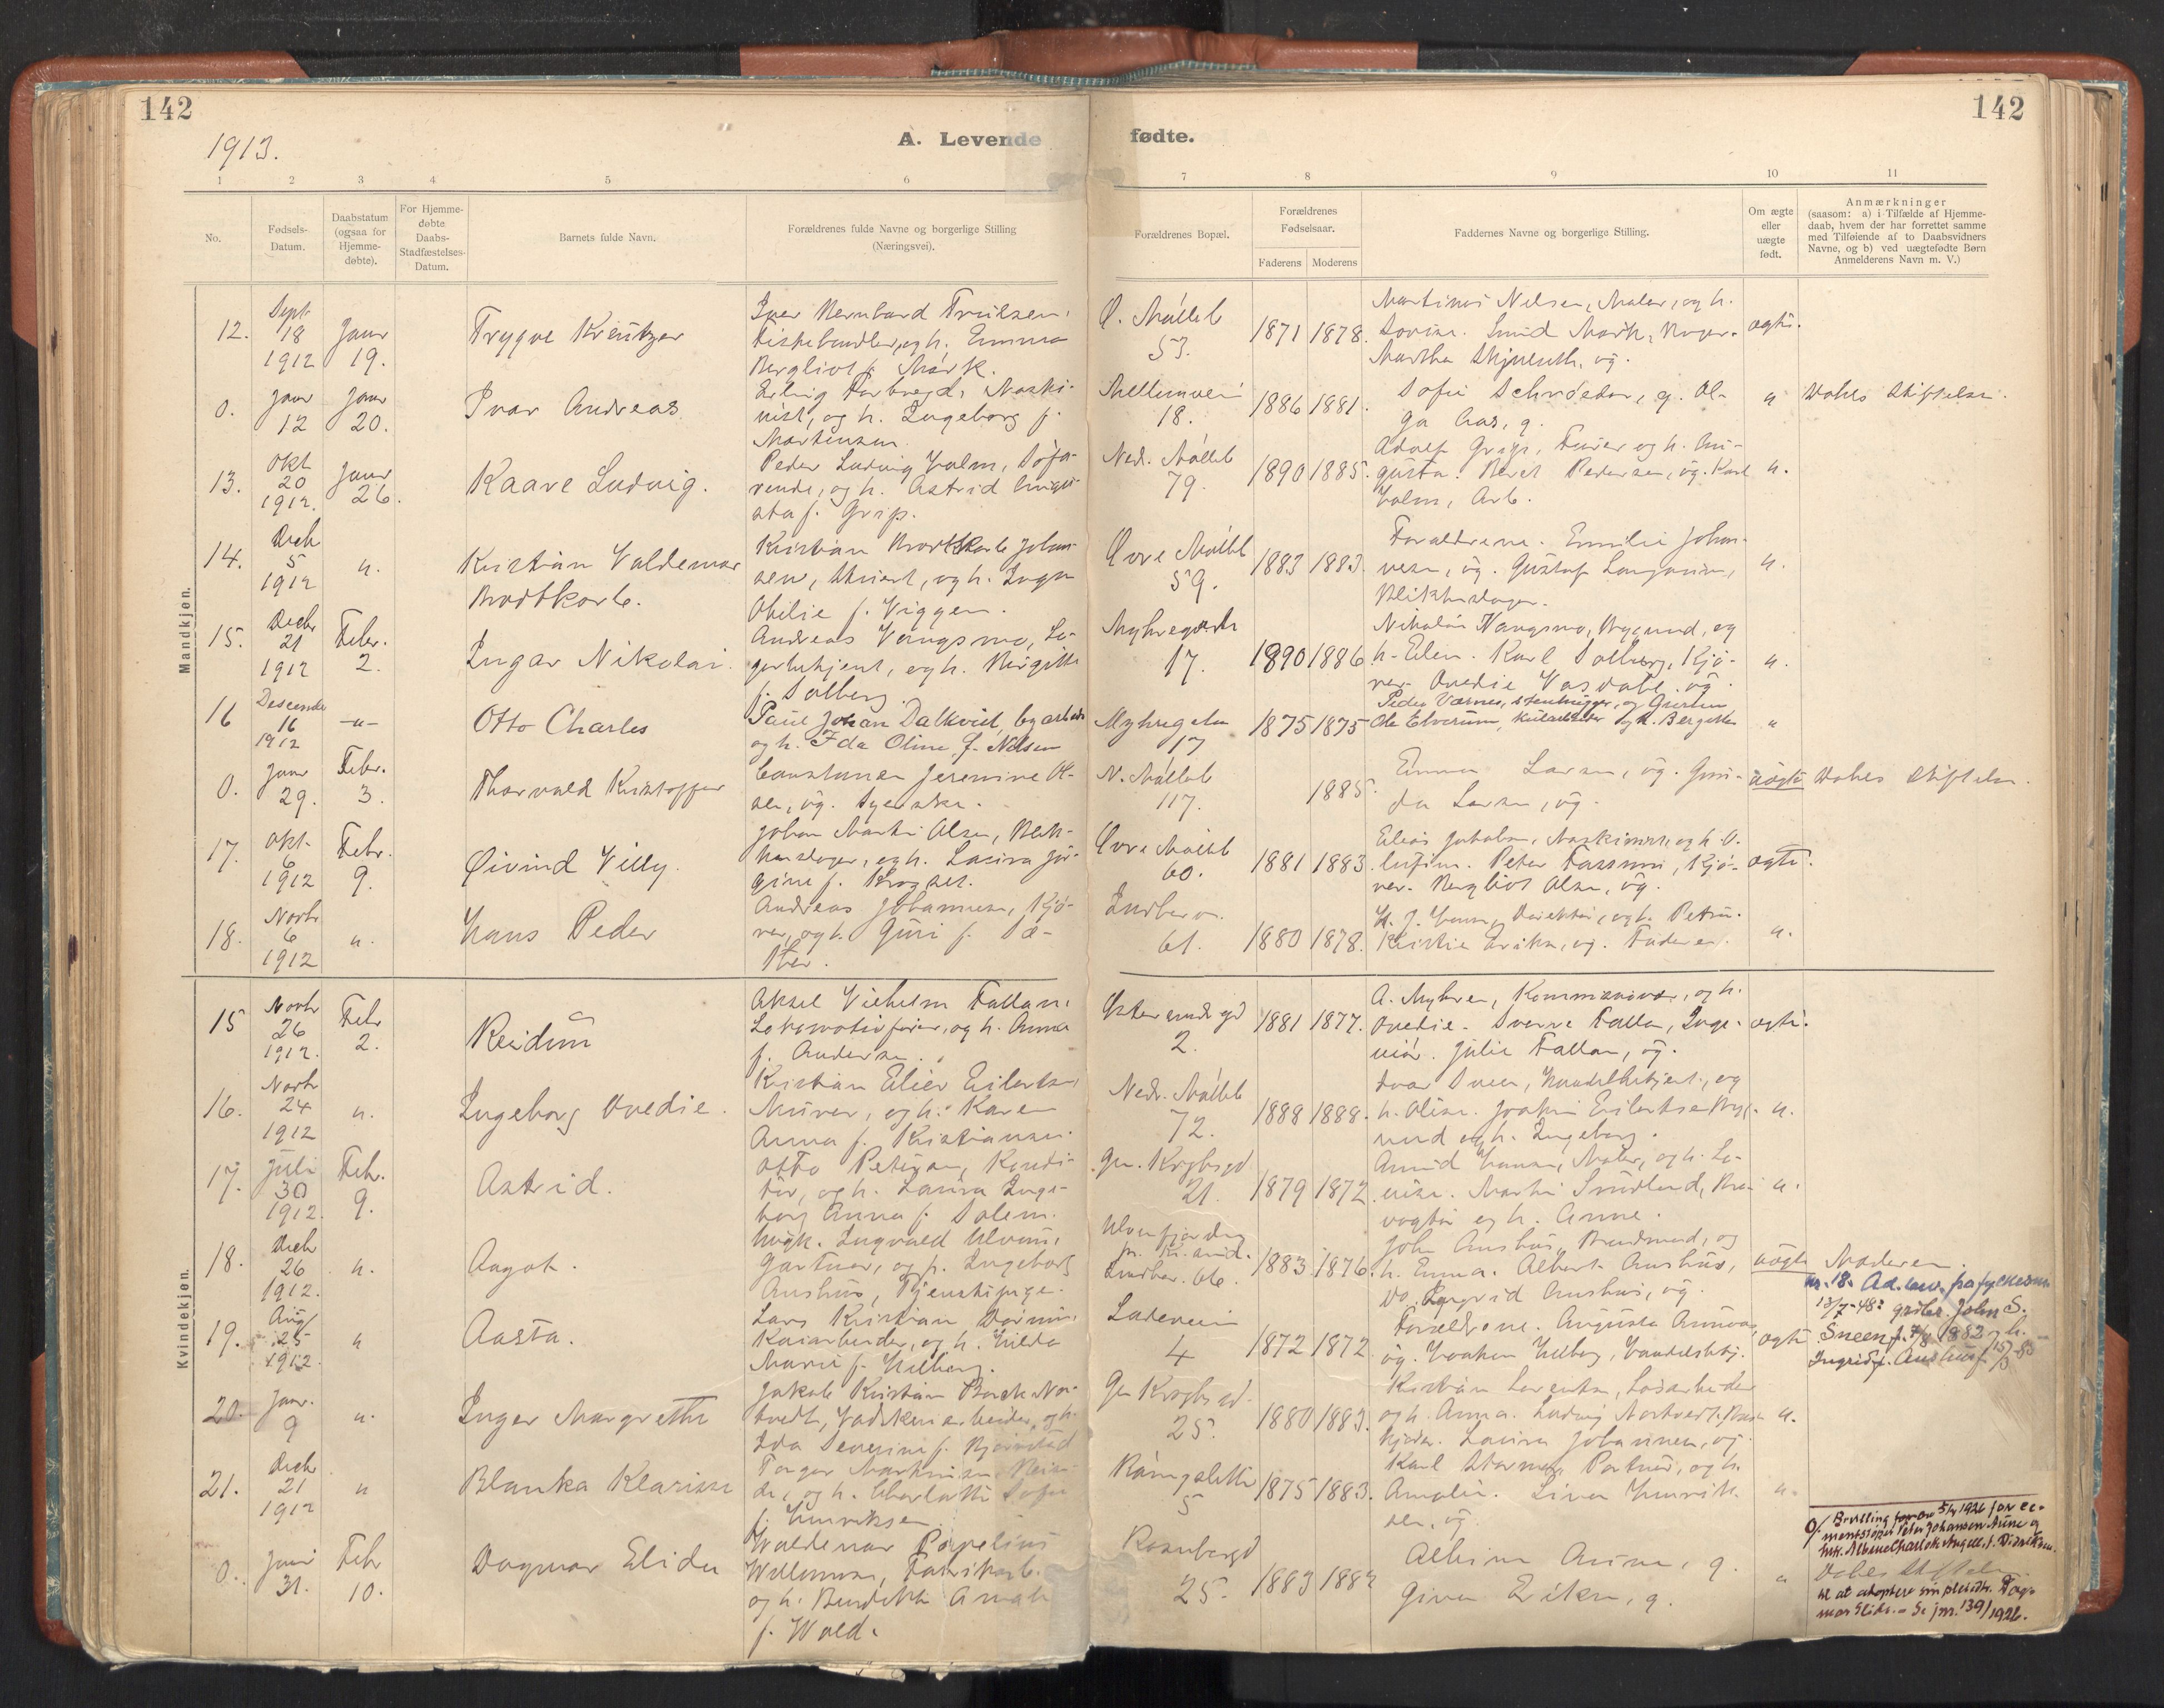 142
142
1913.
A. Levende fødte.
1 2 3 4 5 6 7 8 9 10 11
No.
Fødsels-
Datum.
Daabstatum
(ogsaa for
Hjemme-
døbte).
For Hjemme-
døbte
Daabs-
Stadfæstelses-
Datum.
Barnets fulde Navn.
Forældrenes fulde Navne og borgerlige Stilling
(Næringsvei).
Forældrenes Bopæl.
Forældrenes
Fødselsaar.
Faderens Moderens
Faddernes Navne og borgerlige Stilling.
Om ægte
eller
uægte
født.
Anmærkninger
(saasom: a) i Tilfælde af Hjemme-
daab, hvem der har forrettet samme
med Tilføiende af to Daabsvidners
Navne, og b) ved uægtefødte Børn
Anmelderens Navn m. V.)
Mandkjøn.
12. Sept 18 1912 Janr 19. Trygve Kreutzer
Iver Bernhard Truilsen,
Fiskehandler, og h. Emma
Bergliot f. Mørk.
Ø. Mølleb 53. 1871 1878.
Martinus Nilsen, Maler, og h.
Lovise.
Martha
ug.
ægte.
0. Janr 12 Janr 20. Ivar Andreas
Erling Forbregd, Maski-
nist, og h. Ingeborg f.
Martinsen.
Mellemvei 18. 1886 1881.
Sofie Schrøder, g. Ol-
ga Aas, g.
" Dahls Stiftelse.
13. Okt 20 1912. Janr 26. Kaare Ludvig.
Peder Ludvig Holm, Søfa-
rende, og h. Astrid Augu-
sta f. Grip.
Ned. Mølleb 79. 1890 1885.
Adolf Grip, Furer og h. Au-
gusta. Beret Pedersen, ug. Karl
Holm, Arb.
".
14. Decb 5 1912 ". Kristian Valdemar
Brodtkorb.
Kristian Brodtkorb Johan-
sen, Skuesp, og h. Inga
Otilie f. Viggen.
Øvre Møllebl 59. 1883 1883.
Forældrene. Emilie Johan-
nesen, ug. Gustaf
Blikkenslager.
".
15. Decbr 21 1912 Febr. 2. Ingar Nikolai.
Andreas Vangsmo, La-
gerbetjent, og h. Birgitte
f. Solberg
Myhregaden 17. 1890 1886.
Nikolai Vangsmo, Bygmd, og
h. Elen. Karl Solberg, Kjø-
rer. Ovedie ug.
".
16 Descember 16 1912 -"- Otto Charles
Paul Johan Dalkvist, byarbeid
og h. Ida Oline f. Nilsen
Myhregaten 17 1875 1875
Peder Værnes, stenhugger, og Gurine
Ole Elverum, og h. Bergitte
"
0. Janr 29. Febr. 3. Thorvald Kristoffer
Constance Jeremine Ol-
sen, ug. Syerske.
N. Mølleb 117. 1885.
Emma Larsen, ug. Guri-
da Larsen, ug.
uægte Dahls Stiftelse.
17. Okt. 6 1912 Febr. 9. Øivind Villy.
Johan Martin Olsen, Blik-
kenslager, og h. Laura Jør-
gine f. Krogset.
Øvre Møllebl 60. 1881 1883.
Elias Jakobsen, Maskinist, og h. O-
lufine. Peter Farsmo, Kjø-
rer. Bergliot Olsen, ug.
ægte.
18. Novbr 6 1912 ". Hans Peder
Andreas Johannesen, Kjø-
rer, og h. Guri f. Sæ-
ther.
Indherv. 61. 1880 1878.
H. J. og h. Petra.
Kristie Eriksen, ug. Faderen.
".
Kvindekjøn.
15 Novbr 26 1912. Febr 2. Reidun
Aksel Vilhelm Fallan,
Lokomotivfører, og h. Anna
f. Andersen.
Østersundsgd 2. 1881 1877.
A. Myhren, og h.
Ovedie. Sverre Fallan, Inge-
niør. Julie Fallan, ug.
ægte.
16. Novbr 24 1912 ". Ingeborg Ovedie.
Kristian Elier Eilertsen,
Murer, og h. Karen
Anna f. Kristiansen.
Nedr. Møllebl 72. 1888 1888.
Ivar Sveen, Handelsbetjent, og
h. Oline. Joakim Eilertsen Byg-
mnd og h. Ingeborg.
".
17. Juli 30 1912. Febr. 9. Astrid.
Otto Petersen, Kondi-
tor, og h. Laura Inge-
borg Anna f. Solem.
Gen. Kroghsgd 21. 1879 1872.
Arnid Hansen, Maler, og h. Lo-
uise. Martin Smedlund,
vogter og h. Anne.
".
18. Decb 26 1912. ". Aagot.
Ungk. Ingvald Ulvund,
Gartner, og p. Ingeborg
Aushus, Tjenestepige.
Indher. 66. 1883 1876.
John Aushus, Brandmand, og
h. Emma. Albert Aushus,
Do. Ingrid Aushus, ug.
uægte Moderen.
nr. 18. Ad. bev. fra fylkesm
13/7-48: John S.
Sneen f. 7/8 1882 og h.
Ingrid f. Aushus f. 15/3-83
19. Aug 25 1912. " Aasta.
Lars Kristian
Kaiarbeider, og h. Hilda
Marie f. Hilberg.
Ladeveien 4 1872 1872
Forældrene. Augusta
ug. Haakon Hilberg, Handelsbtj.
ægte
20. Janr. 9 ". Inger Margrethe
Jakob Kristian Borch Nor-
tvedt, arbeider, og h.
Ida Severine f. Bjørnstad
Gen Kroghs gd. 25. 1880 1883.
Kristian Lorentsen, Losarbeider
og h. Anna. Ludvig Nortvedt,
Laura Johannesen, ug.
".
21. Decb 21 1912 " Blanka Klarisse
Torger Martinsen, Reisen-
de, og h. Charlotte Sofie
f. Henriksen.
5 1875 1883.
Karl Størmer, Portner, og h.
Amalie. Lina Henrik-
sen, ug.
".
0. Janr 31. Febr 10. Dagmar Elida
Waldemar Pornelius
Willumsen, Fabrikarb.
og h. Bendikte Amalie
f. Wold.
Rosenborggd 25. 1883 1882
Albine Aune, g.
Gina Eriksen, g.
"
0/. Bevilling 5/4 1926 for ce-
mentstøper Peter Johansen Aune og
h. Albine Charlotte Angell, f. Didriksen
Dahls Stiftelse.
til at adoptere sin pleiedtr. Dag-
mar Elida. - Se jnr. 139/1926.